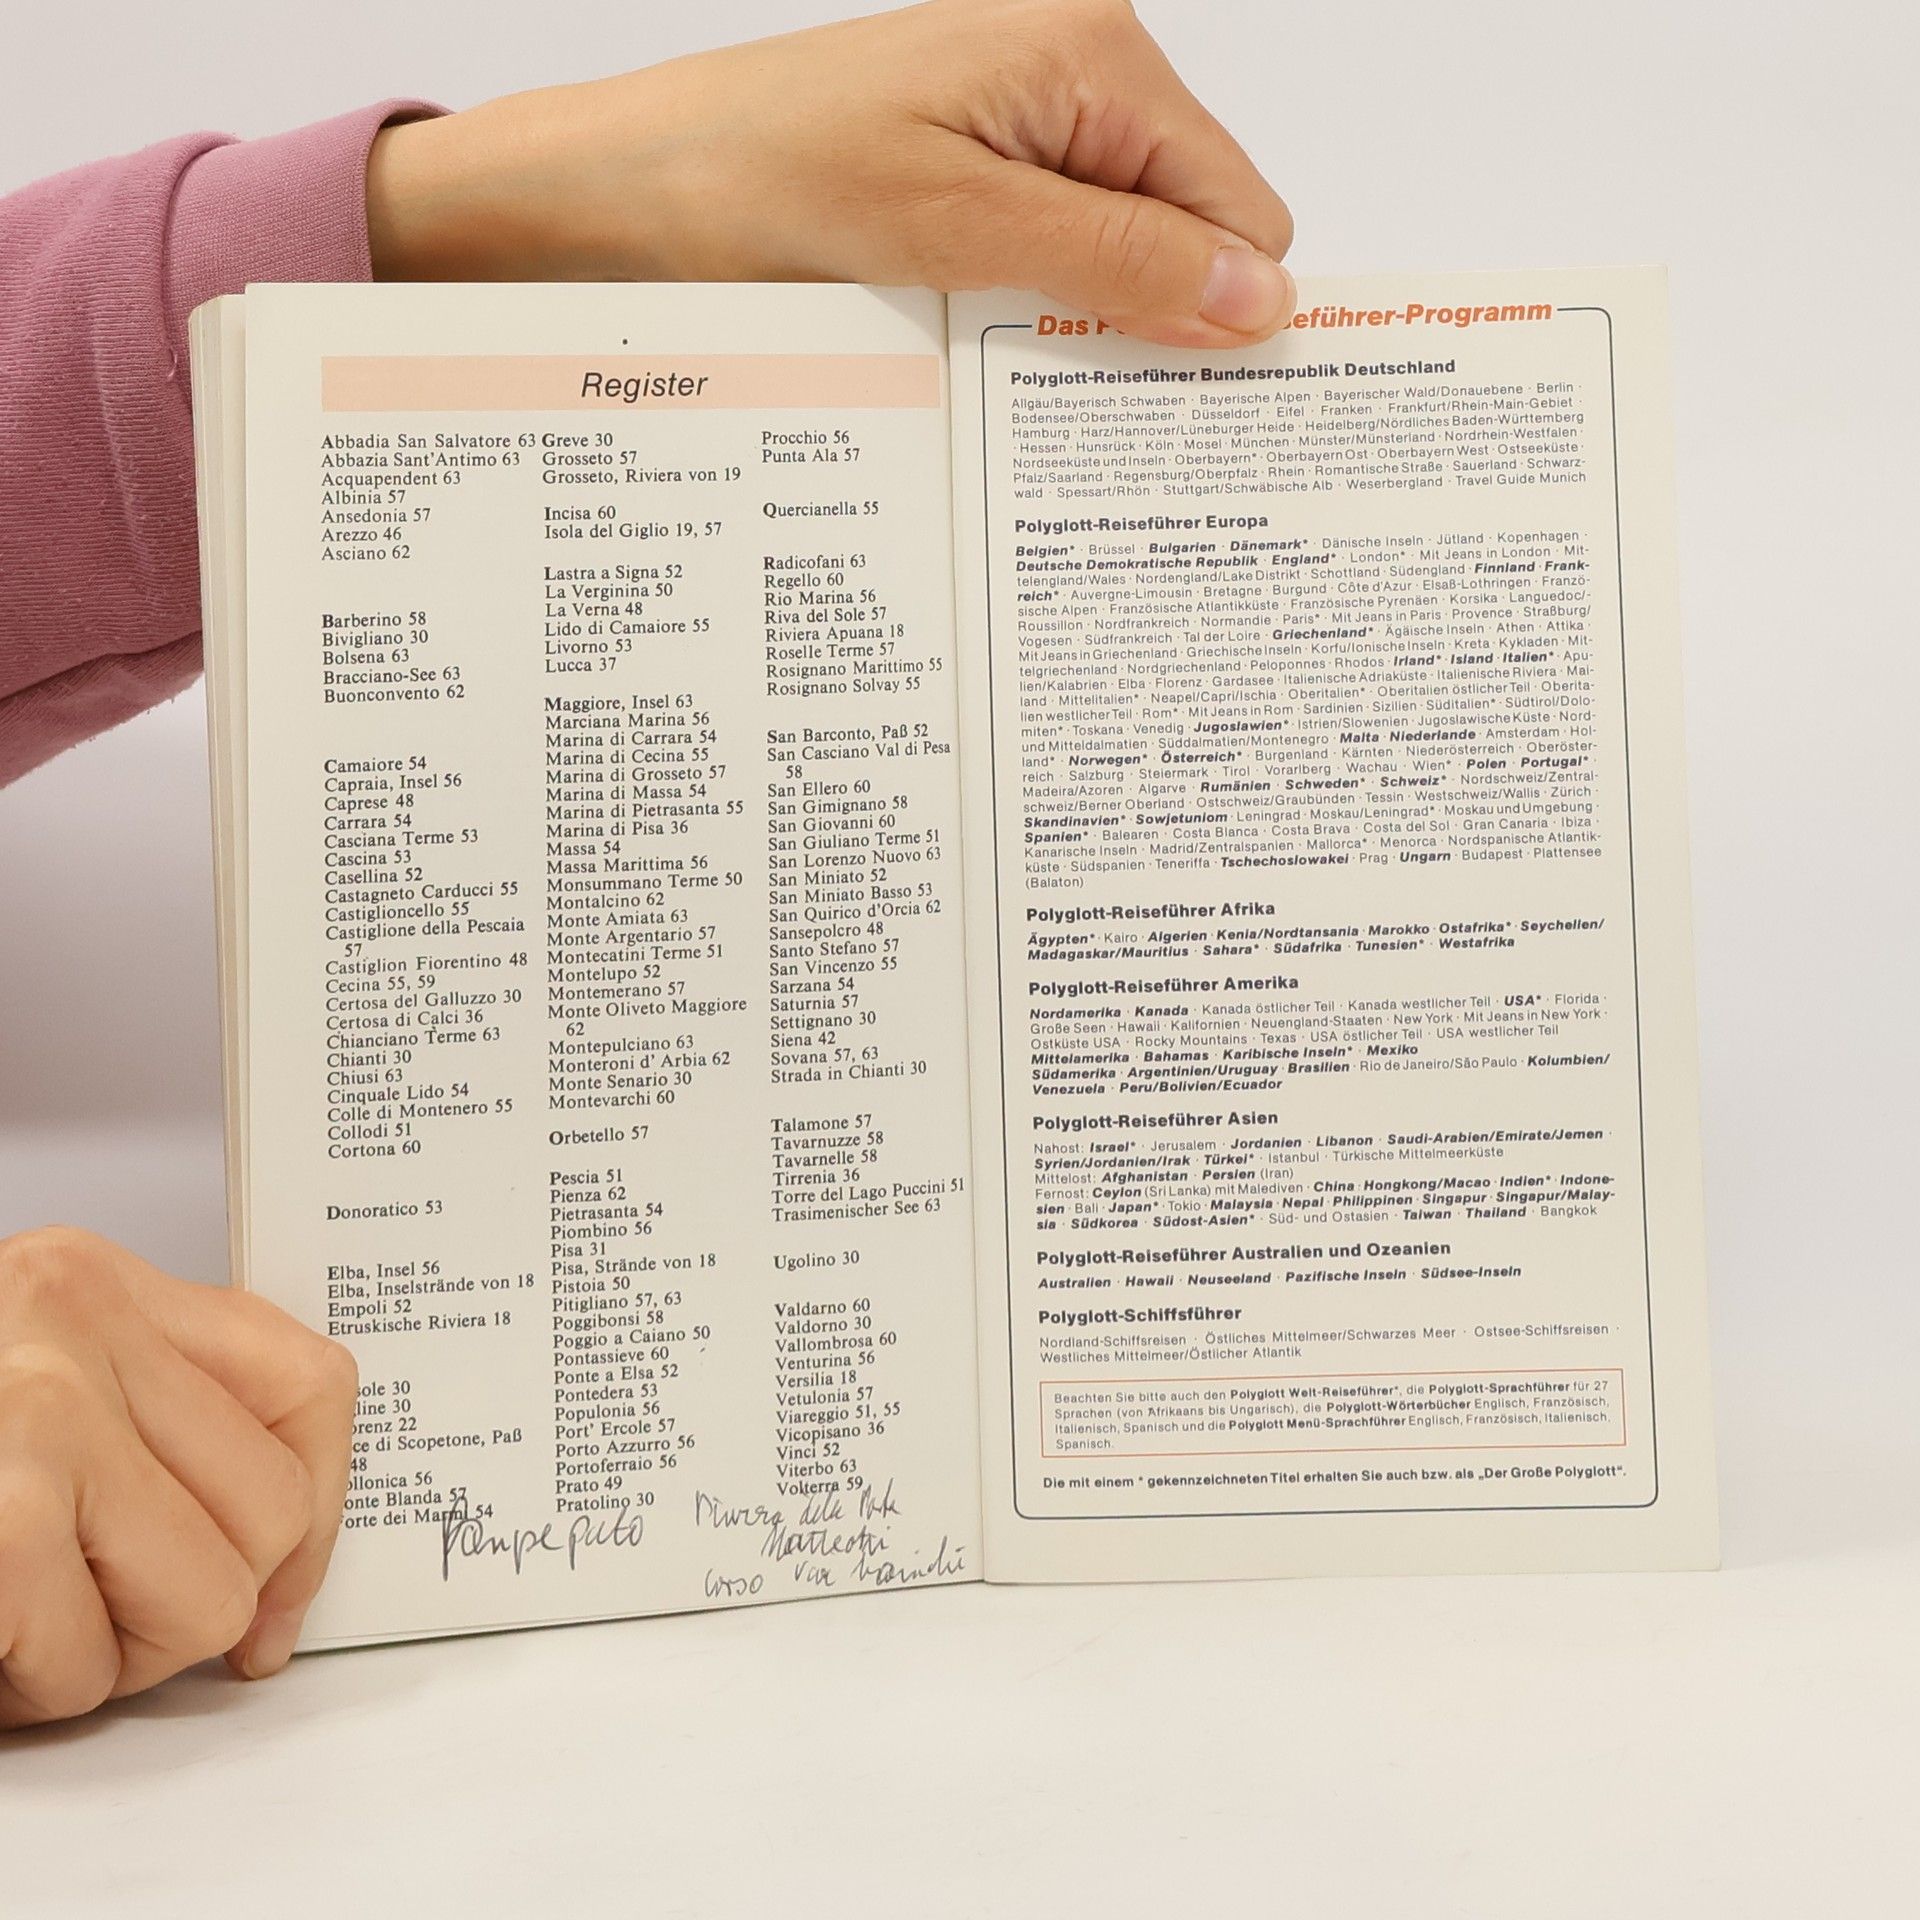 Register
Abbadia San Salvatore 63
Abbazia Sant'Antimo 63
Acquapendent 63
Albinia 57
Ansedonia 57
Arezzo 46
Asciano 62
Barberino 58
Bivigliano 30
Bolsena 63
Bracciano-See 63
Buonconvento 62
Camaiore 54
Capraia, Insel 56
Caprese 48
Carrara 54
Casciana Terme 53
Cascina 53
Casellina 52
Castagneto Carducci 55
Castiglioncello 55
Castiglione della Pescaia
57
Castiglion Fiorentino 48
Cecina 55, 59
Certosa del Galluzzo 30
Certosa di Calci 36
Chianciano Terme 63
Chianti 30
Chiusi 63
Cinquale Lido 54
Colle di Montenero 55
Collodi 51
Cortona 60
Donoratico 53
Elba, Insel 56
Elba, Inselstrände von 18
Empoli 52
Etruskische Riviera 18
sole 30
line 30
orenz 22
ce di Scopetone, Paß
48
ollonica 56
onte Blanda 57
orte dei Marmi 54
Greve 30
Grosseto 57
Grosseto, Riviera von 19
Incisa 60
Isola del Giglio 19, 57
Lastra a Signa 52
La Verginina 50
La Verna 48
Lido di Camaiore 55
Livorno 53
Lucca 37
Maggiore, Insel 63
Marciana Marina 56
Marina di Carrara 54
Marina di Cecina 55
Marina di Grosseto 57
Marina di Massa 54
Marina di Pietrasanta 55
Marina di Pisa 36
Massa 54
Massa Marittima 56
Monsummano Terme 50
Montalcino 62
Monte Amiata 63
Monte Argentario 57
Montecatini Terme 51
Montelupo 52
Montemerano 57
Monte Oliveto Maggiore
62
Montepulciano 63
Monteroni d' Arbia 62
Monte Senario 30
Montevarchi 60
Orbetello 57
Pescia 51
Pienza 62
Pietrasanta 54
Piombino 56
Pisa 31
Pisa, Strände von 18
Pistoia 50
Pitigliano 57, 63
Poggibonsi 58
Poggio a Caiano 50
Pontassieve 60
Ponte a Elsa 52
Pontedera 53
Populonia 56
Port' Ercole 57
Porto Azzurro 56
Portoferraio 56
Prato 49
Pratolino 30
Procchio 56
Punta Ala 57
Quercianella 55
Radicofani 63
Regello 60
Rio Marina 56
Riva del Sole 57
Riviera Apuana 18
Roselle Terme 57
Rosignano Marittimo 55
Rosignano Solvay 55
San Barconto, Paß 52
San Casciano Val di Pesa
58
San Ellero 60
San Gimignano 58
San Giovanni 60
San Giuliano Terme 51
San Lorenzo Nuovo 63
San Miniato 52
San Miniato Basso 53
San Quirico d'Orcia 62
Sansepolcro 48
Santo Stefano 57
San Vincenzo 55
Sarzana 54
Saturnia 57
Settignano 30
Siena 42
Sovana 57, 63
Strada in Chianti 30
Talamone 57
Tavarnuzze 58
Tavarnelle 58
Tirrenia 36
Torre del Lago Puccini 51
Trasimenischer See 63
Ugolino 30
Valdarno 60
Valdorno 30
Vallombrosa 60
Venturina 56
Versilia 18
Vetulonia 57
Viareggio 51, 55
Vicopisano 36
Vinci 52
Viterbo 63
Volterra 59
Matteotti
corso
Das eführer-Programm
Polyglott-Reiseführer Bundesrepublik Deutschland
Allgäu/Bayerisch Schwaben · Bayerische Alpen · Bayerischer Wald/Donauebene · Berlin ·
Bodensee/Oberschwaben · Düsseldorf · Eifel · Franken · Frankfurt/Rhein-Main-Gebiet ·
Hamburg · Harz/Hannover/Lüneburger Heide · Heidelberg/Nördliches Baden-Württemberg
· Hessen · Hunsrück · Köln · Mosel · München · Münster/Münsterland · Nordrhein-Westfalen ·
Nordseeküste und Inseln · Oberbayern* · Oberbayern Ost · Oberbayern West · Ostseeküste ·
Pfalz/Saarland · Regensburg/Oberpfalz · Rhein · Romantische Straße · Sauerland · Schwarz-
wald · Spessart/Rhön · Stuttgart/Schwäbische Alb · Weserbergland · Travel Guide Munich
Polyglott-Reiseführer Europa
Belgien* · Brüssel · Bulgarien · Dänemark* · Dänische Inseln · Jütland · Kopenhagen ·
Deutsche Demokratische Republik · England* · London* · Mit Jeans in London · Mit-
telengland/Wales · Nordengland/Lake Distrikt · Schottland · Südengland · Finnland · Frank-
reich* · Auvergne-Limousin · Bretagne · Burgund · Côte d'Azur · Elsaß-Lothringen · Franzö-
sische Alpen · Französische Atlantikküste · Französische Pyrenäen · Korsika · Languedoc/-
Roussillon · Nordfrankreich · Normandie · Paris* · Mit Jeans in Paris · Provence · Straßburg/
Vogesen · Südfrankreich · Tal der Loire · Griechenland* · Ägäische Inseln · Athen · Attika ·
Mit Jeans in Griechenland · Griechische Inseln · Korfu/Ionische Inseln · Kreta · Kykladen · Mit-
telgriechenland · Nordgriechenland · Peloponnes · Rhodos · Irland* · Island · Italien* · Apu-
lien/Kalabrien · Elba · Florenz · Gardasee · Italienische Adriaküste · Italienische Riviera · Mai-
land · Mittelitalien* · Neapel/Capri/Ischia · Oberitalien* · Oberitalien östlicher Teil · Oberita-
lien westlicher Teil · Rom* · Mit Jeans in Rom · Sardinien · Sizilien · Süditalien* · Südtirol/Dolo-
miten* · Toskana · Venedig · Jugoslawien* · Istrien/Slowenien · Jugoslawische Küste · Nord-
und Mitteldalmatien · Süddalmatien/Montenegro · Malta · Niederlande · Amsterdam · Hol-
land* · Norwegen* · Österreich* · Burgenland · Kärnten · Niederösterreich · Oberöster-
reich · Salzburg · Steiermark · Tirol · Vorarlberg · Wachau · Wien* · Polen · Portugal* ·
Madeira/Azoren · Algarve · Rumänien · Schweden* · Schweiz* · Nordschweiz/Zentral-
schweiz/Berner Oberland · Ostschweiz/Graubünden · Tessin · Westschweiz/Wallis · Zürich ·
Skandinavien* · Sowjetunion · Leningrad · Moskau/Leningrad* · Moskau und Umgebung ·
Spanien* · Balearen · Costa Blanca · Costa Brava · Costa del Sol · Gran Canaria · Ibiza ·
Kanarische Inseln · Madrid/Zentralspanien · Mallorca* · Menorca · Nordspanische Atlantik-
küste · Südspanien · Teneriffa · Tschechoslowakei · Prag · Ungarn · Budapest · Plattensee
(Balaton)
Polyglott-Reiseführer Afrika
Ägypten* · Kairo · Algerien · Kenia/Nordtansania · Marokko · Ostafrika* · Seychellen/
Madagaskar/Mauritius · Sahara* · Südafrika · Tunesien* · Westafrika
Polyglott-Reiseführer Amerika
Nordamerika · Kanada · Kanada östlicher Teil · Kanada westlicher Teil · USA* · Florida ·
Große Seen · Hawaii · Kalifornien · Neuengland-Staaten · New York · Mit Jeans in New York ·
Ostküste USA · Rocky Mountains · Texas · USA östlicher Teil · USA westlicher Teil
Mittelamerika · Bahamas · Karibische Inseln* · Mexiko
Südamerika · Argentinien/Uruguay · Brasilien · Rio de Janeiro/São Paulo · Kolumbien/
Venezuela · Peru/Bolivien/Ecuador
Polyglott-Reiseführer Asien
Nahost: Israel* · Jerusalem · Jordanien · Libanon · Saudi-Arabien/Emirate/Jemen ·
Syrien/Jordanien/Irak · Türkei* · Istanbul · Türkische Mittelmeerküste
Mittelost: Afghanistan · Persien (Iran)
Fernost: Ceylon (Sri Lanka) mit Malediven · China · Hongkong/Macao · Indien* · Indone-
sien · Bali · Japan* · Tokio · Malaysia · Nepal · Philippinen · Singapur · Singapur/Malay-
sia · Südkorea · Südost-Asien* · Süd- und Ostasien · Taiwan · Thailand · Bangkok
Polyglott-Reiseführer Australien und Ozeanien
Australien · Hawaii · Neuseeland · Pazifische Inseln · Südsee-Inseln
Polyglott-Schiffsführer
Nordland-Schiffsreisen · Östliches Mittelmeer/Schwarzes Meer · Ostsee-Schiffsreisen ·
Westliches Mittelmeer/Östlicher Atlantik
Beachten Sie bitte auch den Polyglott Welt-Reiseführer*, die Polyglott-Sprachführer für 27
Sprachen (von Afrikaans bis Ungarisch), die Polyglott-Wörterbücher Englisch, Französisch,
Italienisch, Spanisch und die Polyglott Menü-Sprachführer Englisch, Französisch, Italienisch,
Spanisch.
Die mit einem * gekennzeichneten Titel erhalten Sie auch bzw. als „Der Große Polyglott“.